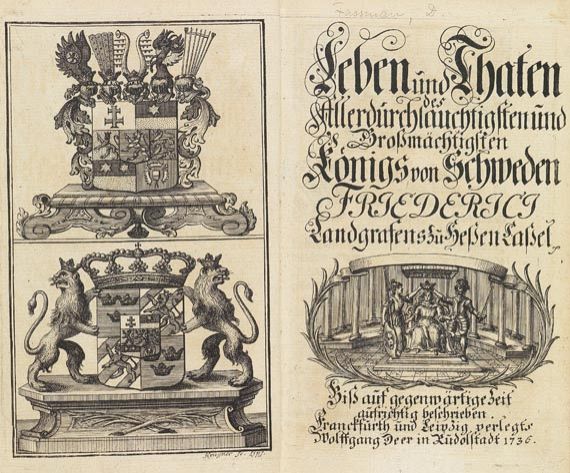 Fassmann, D.
Leben und Thaten
des
Allerdurchlauchtigsten und
Großmächtigsten
Königs von Schweden
FRIEDERICI
Landgrafens zu Heßen Caßel,
Biß auf gegenwärtige Zeit
aufrichtig beschrieben.
Franckfurth und Leipzig verlegts
Wolffgang Deer in Rudolstadt 1736.